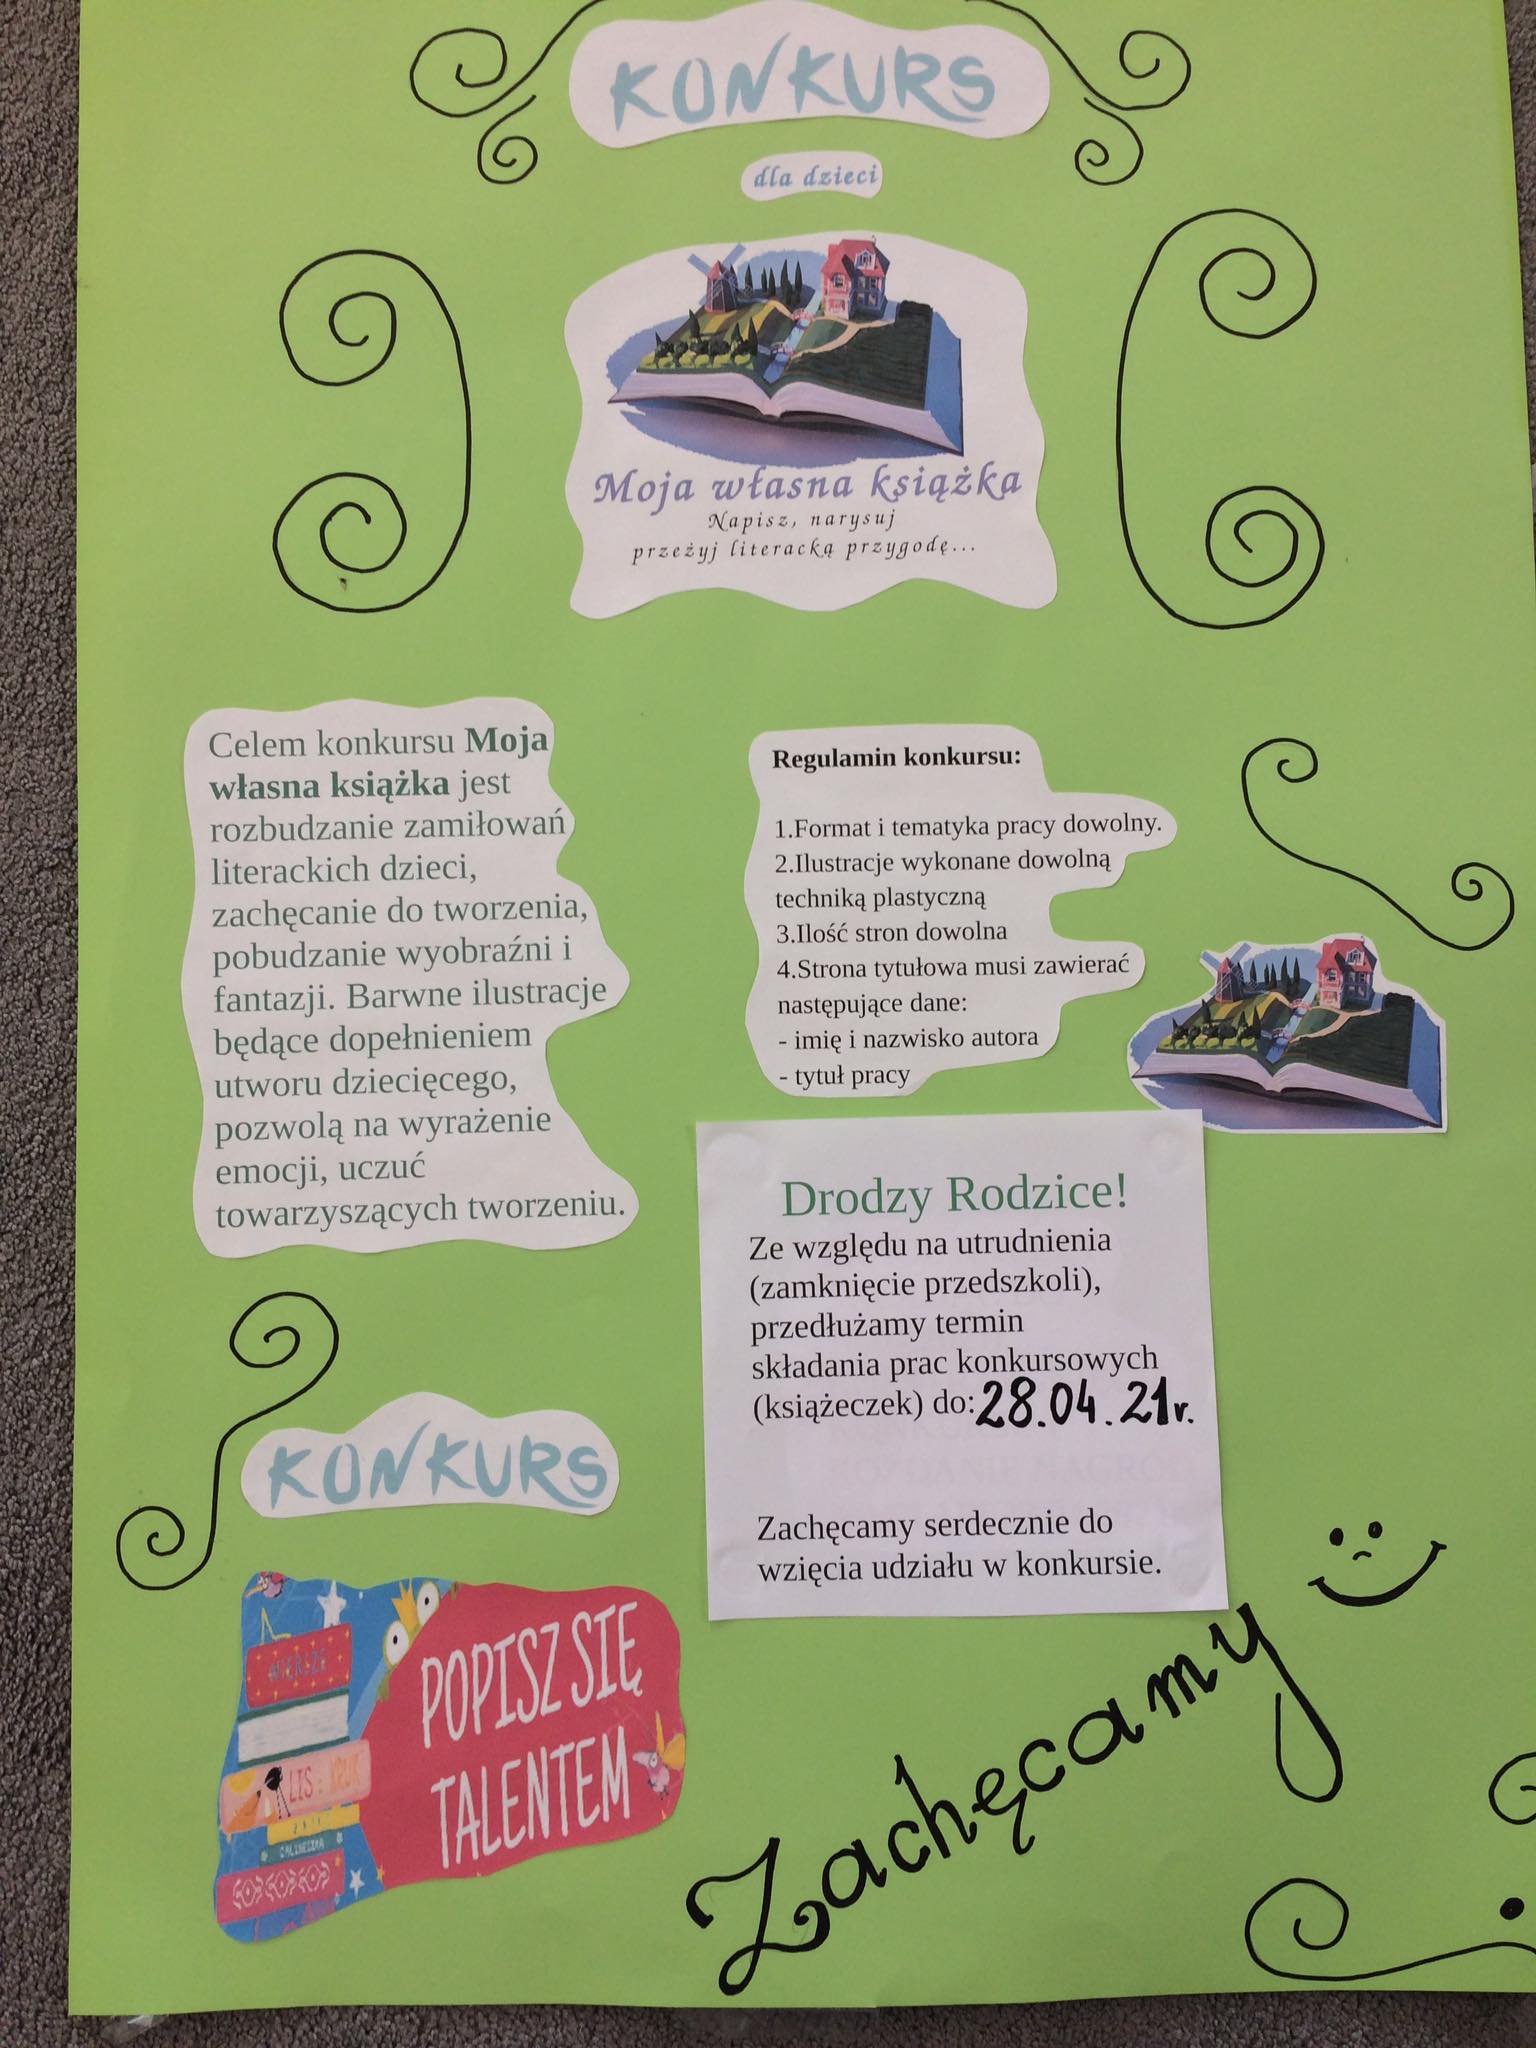 KONKURS
dla dzieci
Moja własna książka
Napisz, narysuj
przeżyj literacką przygodę...
Celem konkursu Moja
własna książka jest
rozbudzanie zamiłowań
literackich dzieci,
zachęcanie do tworzenia,
pobudzanie wyobraźni i
fantazji. Barwne ilustracje
będące dopełnieniem
utworu dziecięcego,
pozwolą na wyrażenie
emocji, uczuć
towarzyszących tworzeniu.
Regulamin konkursu:
1.Format i tematyka pracy dowolny.
2.Ilustracje wykonane dowolną
techniką plastyczną
3.Ilość stron dowolna
4.Strona tytułowa musi zawierać
następujące dane:
- imię i nazwisko autora
- tytuł pracy
Drodzy Rodzice!
Ze względu na utrudnienia
(zamknięcie przedszkoli),
przedłużamy termin
składania prac konkursowych
(książeczek) do: 28.04.21r.
Zachęcamy serdecznie do
wzięcia udziału w konkursie.
KONKURS
WIERSZE
LIS
CALINECZKA
POPISZ SIĘ
TALENTEM
Zachęcamy